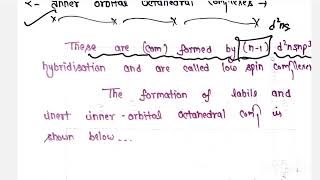 2- Inner orbital octahedral complexes →
d²ns
These are (com) formed by (n-1)d²nsnp³
hybridisation and are called low spin complexes
The formation of labils and
inert inner-orbital octahedral comp is
shown below...